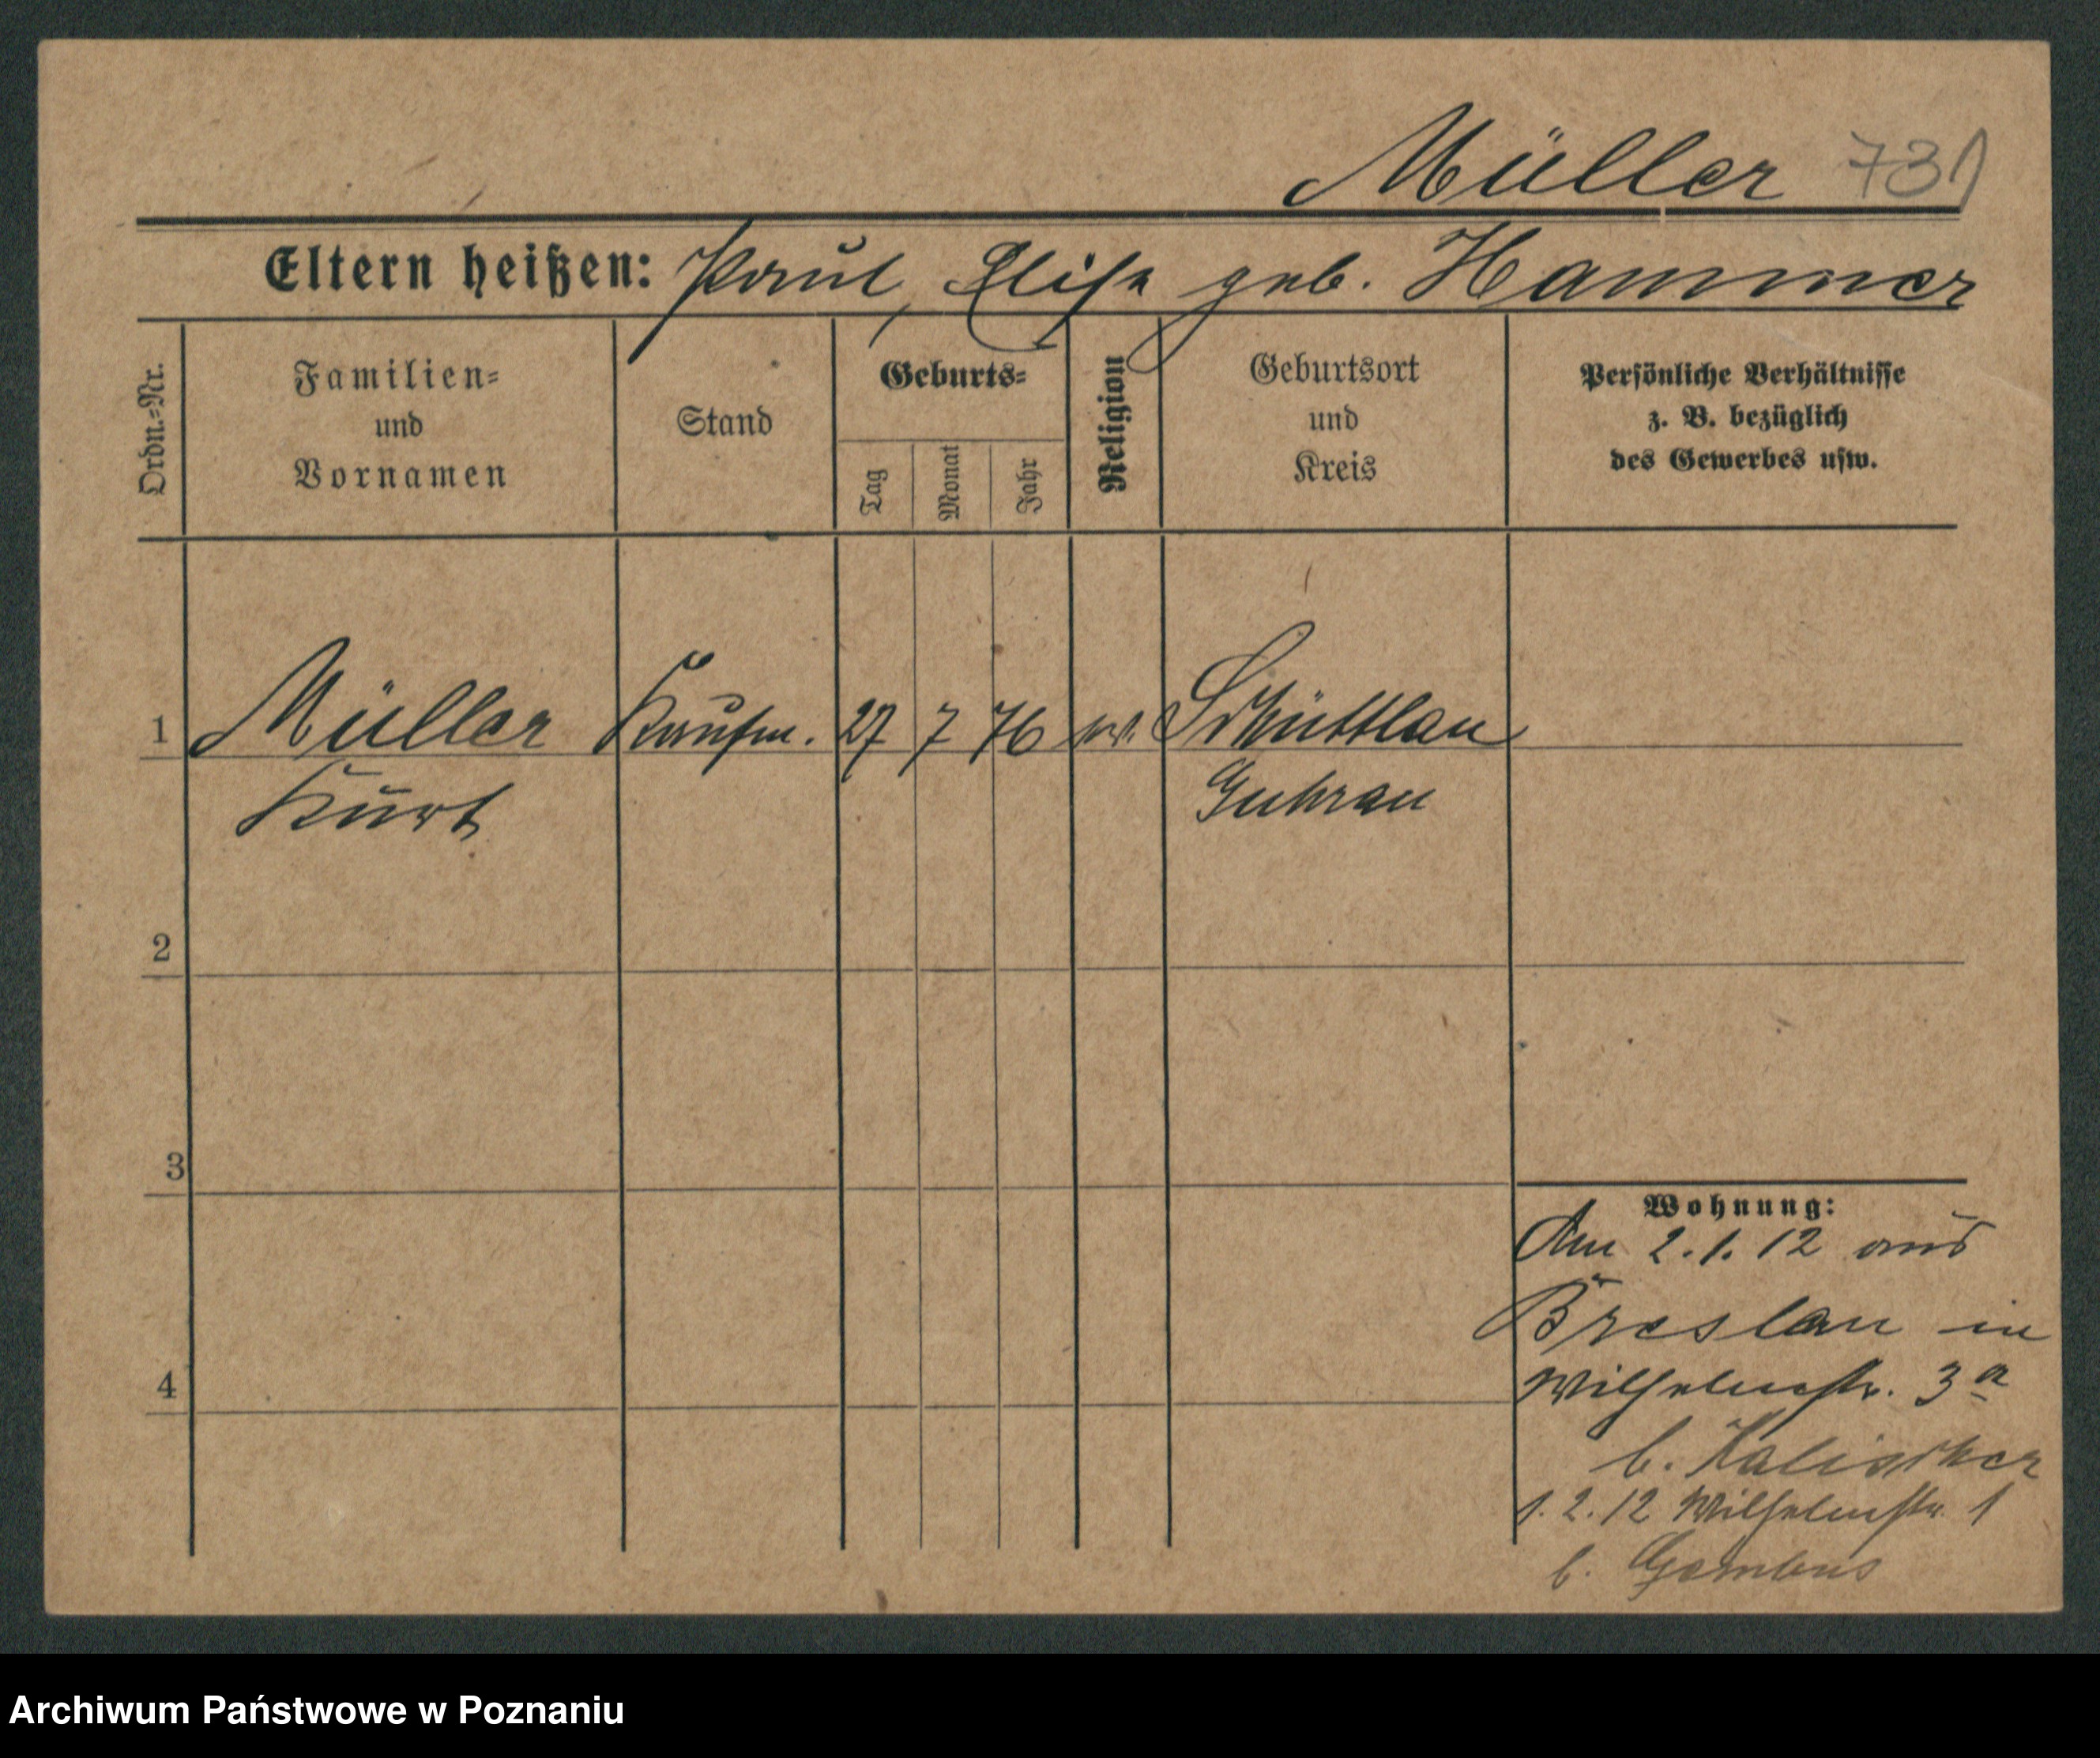 Müller 731
Eltern heißen: Paul, Elise geb. Hammer
Ordn.=Nr.
Familien=
und
Vornamen
Stand
Geburts=
Tag
Monat
Jahr
Religion
Geburtsort
und
Kreis
Persönliche Verhältnisse
z. B. bezüglich
des Gewerbes usw.
1 Müller Kaufm. 27 7 76 Schüttlau
Kurt Guhrau
2
3
4
Wohnung:
Am 2.1.12 aus
Breslau in
Wilhelmstr. 3a
b. Kalischer
1.2.12 Wilhelmstr. 1
b.
Archiwum Państwowe w Poznaniu